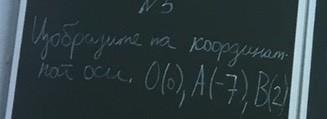 №3
Изобразите на координат-
ной оси. O(0), A(-7), B(2)